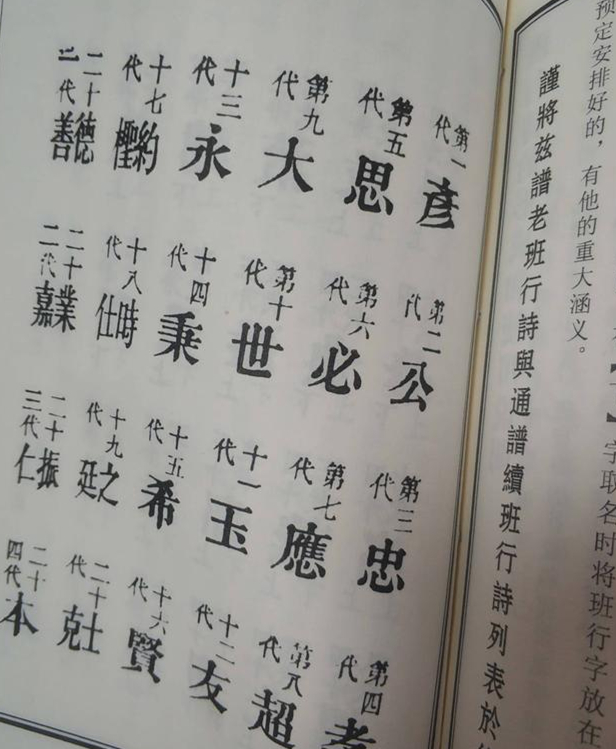 字取名时将班行字放在
预定安排好的，有他的重大涵义。
謹將兹譜老班行詩與通譜續班行詩列表於
第一代 彥
第二代 公
第三代 忠
第四代 孝
第五代 思
第六代 必
第七代 應
第八代 超
第九代 大
第十代 世
十一代 玉
十二代 友
十三代 永
十四代 秉
十五代 希
十六代 賢
十七代 約
十八代 時仕
十九代 之廷
二十代 士克
二十代 德善
二十二代 業嘉
二十三代 振仁
二十四代 本